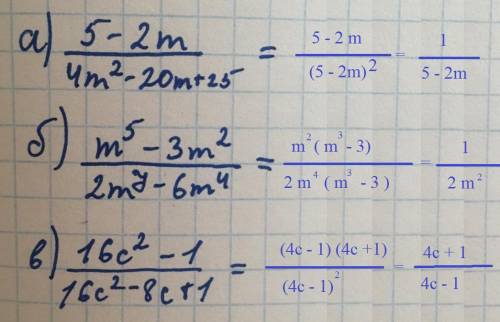 а) (5 - 2m)/(4m² - 20m + 25) = (5 - 2 m)/((5 - 2m)²) = 1/(5 - 2m)
б) (m⁵ - 3m²)/(2m⁷ - 6m⁴) = (m² ( m³ - 3))/(2 m⁴ (m³ - 3 )) = 1/(2 m²)
в) (16c² - 1)/(16c² - 8c + 1) = ((4c - 1) (4c +1))/((4c - 1)²) = (4c + 1)/(4c - 1)